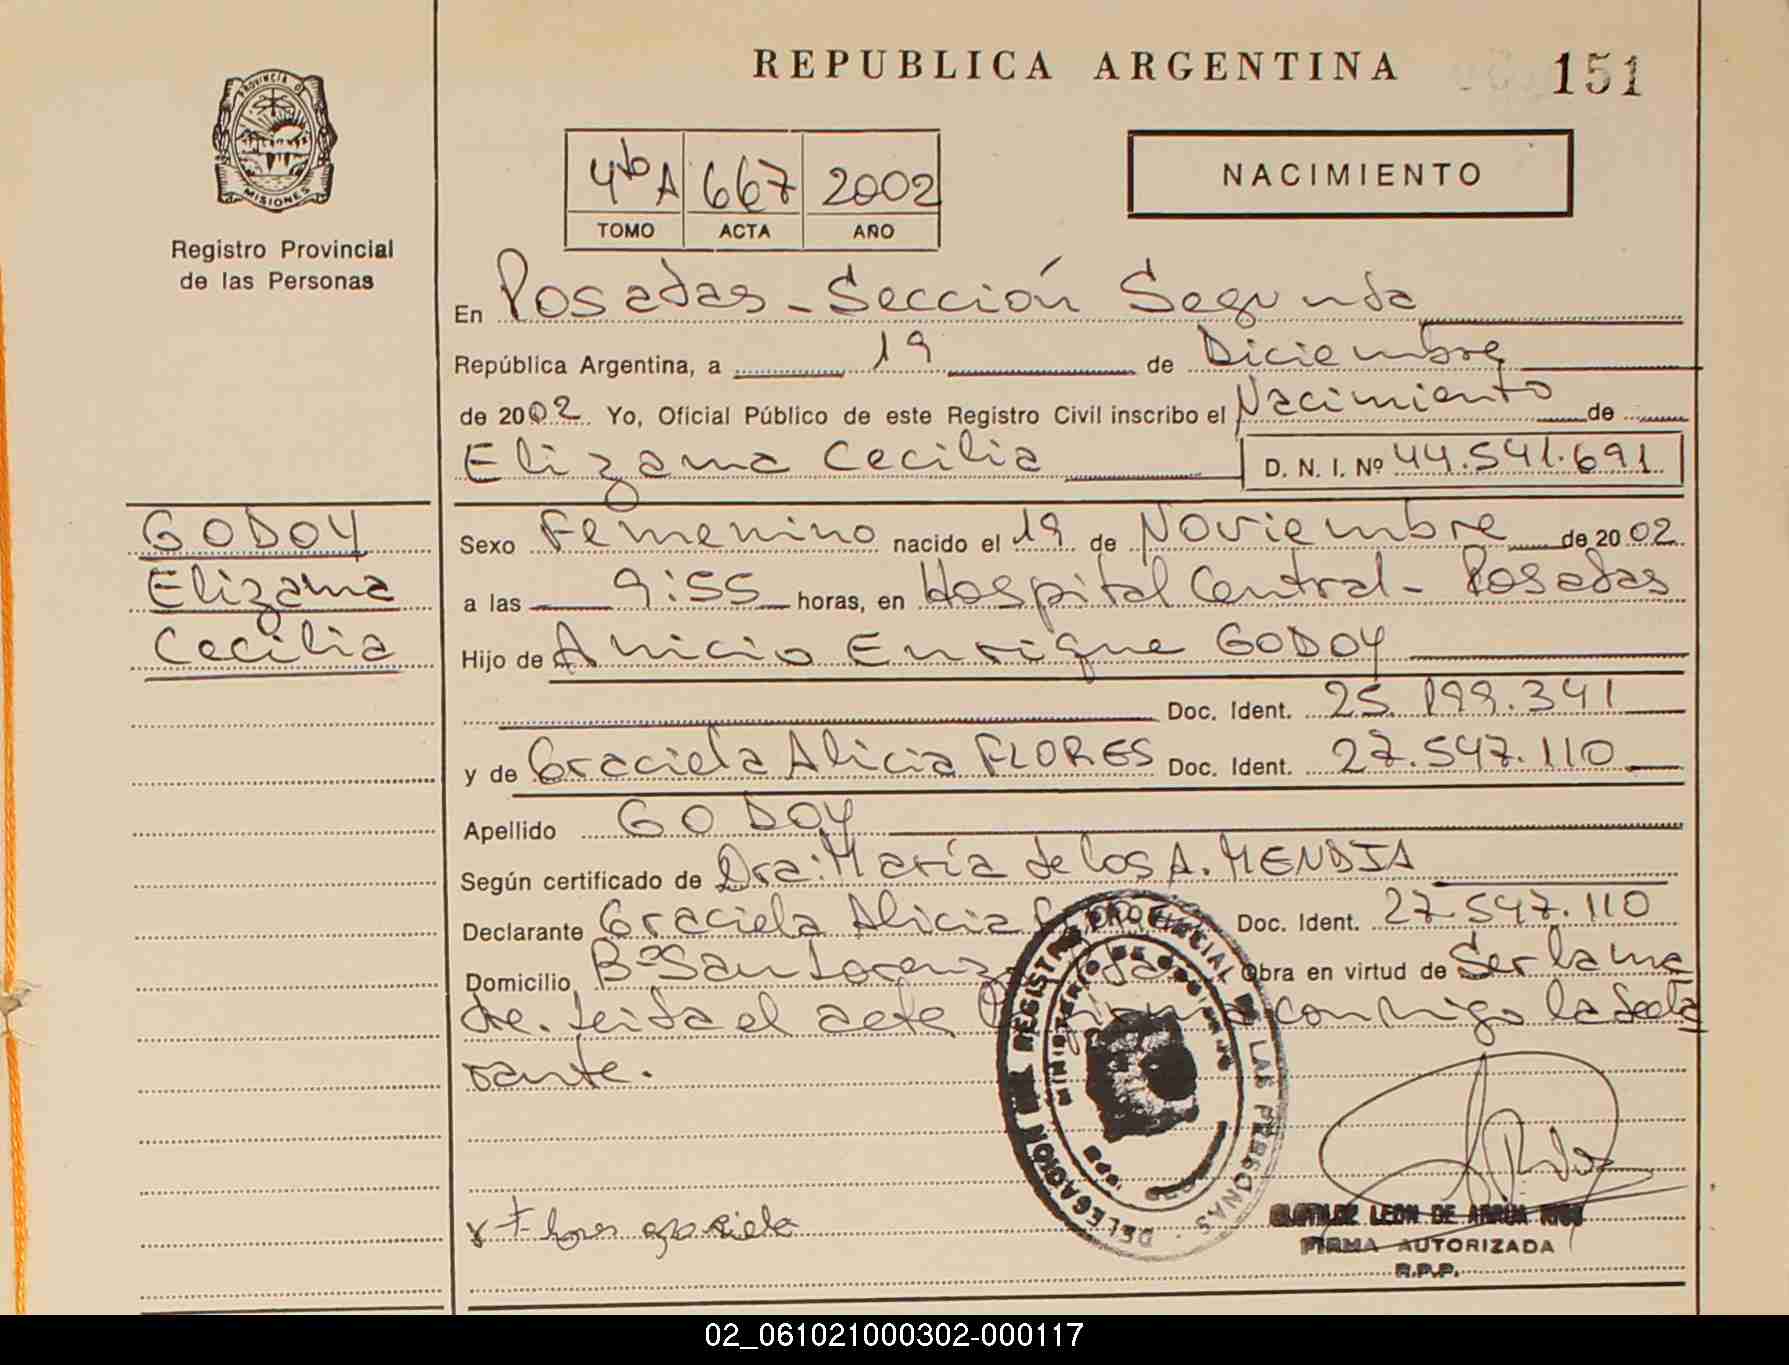 REPUBLICA ARGENTINA
151
PROVINCIA DE
MISIONES
Registro Provincial
de las Personas
4to A 667 2002
TOMO ACTA AÑO
NACIMIENTO
En Posadas - Sección Segunda
República Argentina, a 19 de Diciembre
de 2002 Yo, Oficial Público de este Registro Civil inscribo el Nacimiento de
Elizama Cecilia D. N. I. Nº 44.541.691
GODOY
Elizama
Cecilia
Sexo Femenino nacido el 19 de Noviembre de 2002
a las 9:55 horas, en Hospital Central - Posadas
Hijo de Anicio Enrique GODOY
Doc. Ident. 25.199.341
y de Graciela Alicia FLORES Doc. Ident. 27.547.110
Apellido GODOY
Según certificado de Dra: María de los A. MENDIA
Declarante Graciela Alicia Doc. Ident. 27.547.110
Domicilio Bº San Lorenzo Obra en virtud de Ser la ma
dre. Leida el acta conmigo la decla
rante.
DELEGACION DEL REGISTRO PROVINCIAL DE LAS PERSONAS
MINISTERIO DE GOBIERNO
Flores graciela
CLOTILDE LEON DE ARRUA
FIRMA AUTORIZADA
R.P.P.
02_061021000302-000117